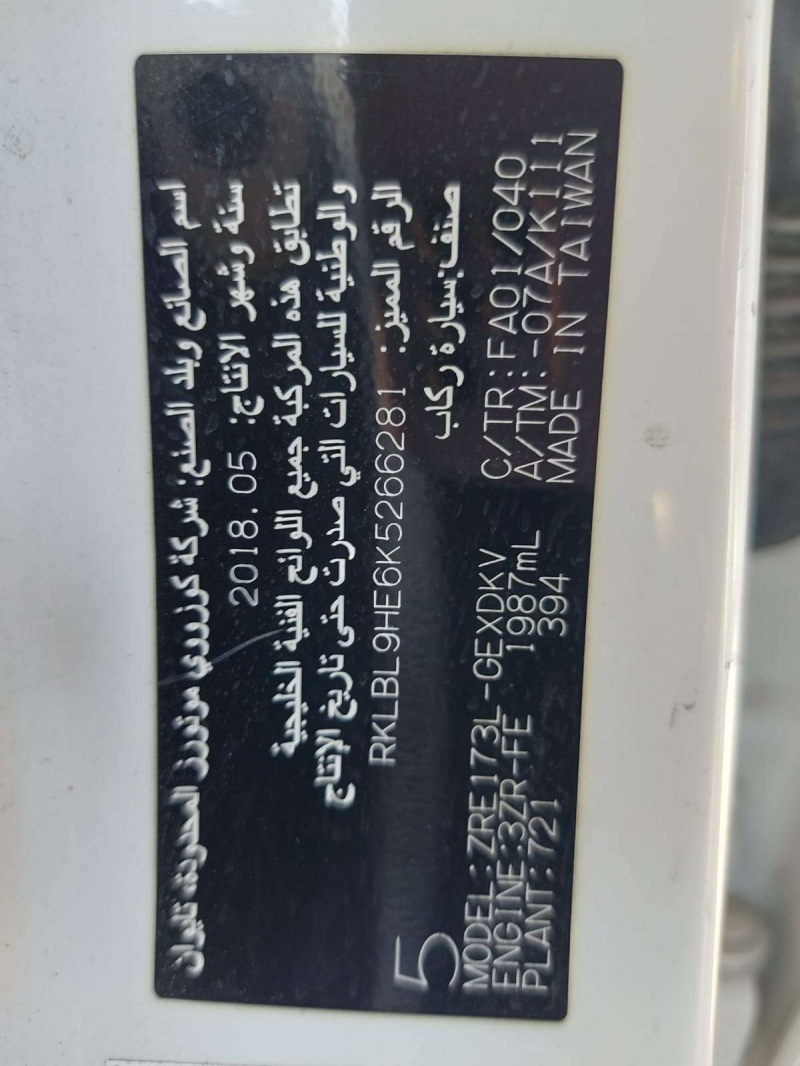 اسم الصانع وبلد الصنع: شركة كوزوري موتورز المحدودة، تايوان
سنة وشهر الانتاج: 2018.05
تطابق هذه المركبة جميع اللوائح الفنية الخليجية
والوطنية للسيارات التي صدرت حتى تاريخ الإنتاج
الرقم المميز: RKLBL9HE6K5266281
صنف:سيارة ركاب
5
MODEL:ZRE173L-GEXDKV C/TR:FA01/040
ENGINE:3ZR-FE 1987mL A/TM:-07A/K111
PLANT:721 394 MADE IN TAIWAN